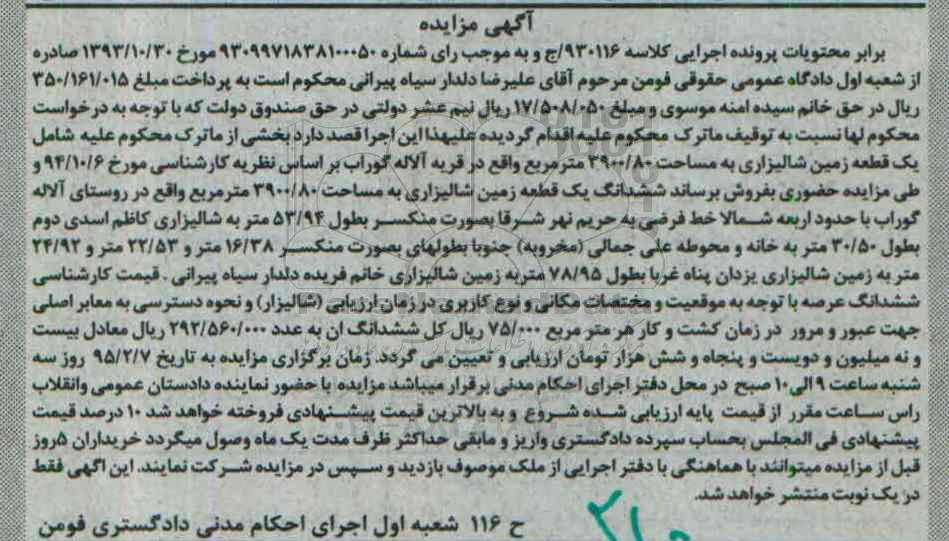 آگهی مزایده
برابر محتویات پرونده اجرایی کلاسه ۹۳۰۱۱۶/ج و به موجب رای شماره ۹۳۰۹۹۷۱۸۳۸۱۰۰۰۵۰ مورخ ۱۳۹۳/۱۰/۳۰ صادره
از شعبه اول دادگاه عمومی حقوقی فومن مرحوم آقای علیرضا دلدار سیاه پیرانی محکوم است به پرداخت مبلغ ۳۵۰/۱۶۱/۰۱۵
ریال در حق خانم سیده امنه موسوی و مبلغ ۱۷/۵۰۸/۰۵۰ ریال نیم عشر دولتی در حق صندوق دولت که با توجه به درخواست
محکوم لها نسبت به توقیف ماترک محکوم علیه اقدام گردیده علیهذا این اجرا قصد دارد بخشی از ماترک محکوم علیه شامل
یک قطعه زمین شالیزاری به مساحت ۳۹۰۰/۸۰ مترمربع واقع در قریه آلاله گوراب بر اساس نظریه کارشناسی مورخ ۹۴/۱۰/۶ و
طی مزایده حضوری بفروش برساند ششدانگ یک قطعه زمین شالیزاری به مساحت ۳۹۰۰/۸۰ مترمربع واقع در روستای آلاله
گوراب با حدود اربعه شمالا خط فرضی به حریم نهر شرقا بصورت منکسر بطول ۵۳/۹۴ متر به شالیزاری کاظم اسدی دوم
بطول ۳۰/۵۰ متر به خانه و محوطه علی جمالی (مخروبه) جنوبا بطولهای بصورت منکسر ۱۶/۳۸ متر و ۲۲/۵۳ متر و ۲۴/۹۲
متر به زمین شالیزاری یزدان پناه غربا بطول ۷۸/۹۵ متر به زمین شالیزاری خانم فریده دلدار سیاه پیرانی . قیمت کارشناسی
ششدانگ عرصه با توجه به موقعیت و مختصات مکانی و نوع کاربری در زمان ارزیابی (شالیزار) و نحوه دسترسی به معابر اصلی
جهت عبور و مرور در زمان کشت و کار هر متر مربع ۷۵/۰۰۰ ریال کل ششدانگ ان به عدد ۲۹۲/۵۶۰/۰۰۰ ریال معادل بیست
و نه میلیون و دویست و پنجاه و شش هزار تومان ارزیابی و تعیین می گردد. زمان برگزاری مزایده به تاریخ ۹۵/۲/۷ روز سه
شنبه ساعت ۹ الی ۱۰ صبح در محل دفتر اجرای احکام مدنی برقرار میباشد مزایده با حضور نماینده دادستان عمومی وانقلاب
راس ساعت مقرر از قیمت پایه ارزیابی شده شروع و به بالاترین قیمت پیشنهادی فروخته خواهد شد ۱۰ درصد قیمت
پیشنهادی فی المجلس بحساب سپرده دادگستری واریز و مابقی حداکثر ظرف مدت یک ماه وصول میگردد خریداران ۵روز
قبل از مزایده میتوانند با هماهنگی با دفتر اجرایی از ملک موصوف بازدید و سپس در مزایده شرکت نمایند. این اگهی فقط
در یک نوبت منتشر خواهد شد.
ح ۱۱۶ شعبه اول اجرای احکام مدنی دادگستری فومن